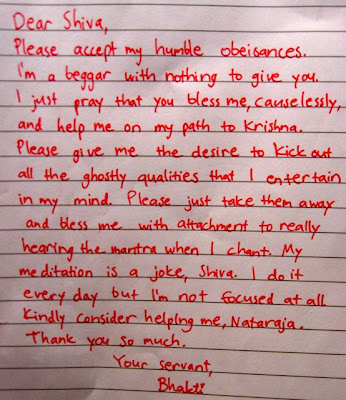 Dear Shiva,
Please accept my humble obeisances.
I'm a beggar with nothing to give you.
I just pray that you bless me, causelessly,
and help me on my path to Krishna.
Please give me the desire to kick out
all the ghostly qualities that I entertain
in my mind. Please just take them away
and bless me with attachment to really
hearing the mantra when I chant. My
meditation is a joke, Shiva. I do it
every day but I'm not focused at all
Kindly consider helping me, Nataraja.
Thank you so much.
Your servant,
Bhakti